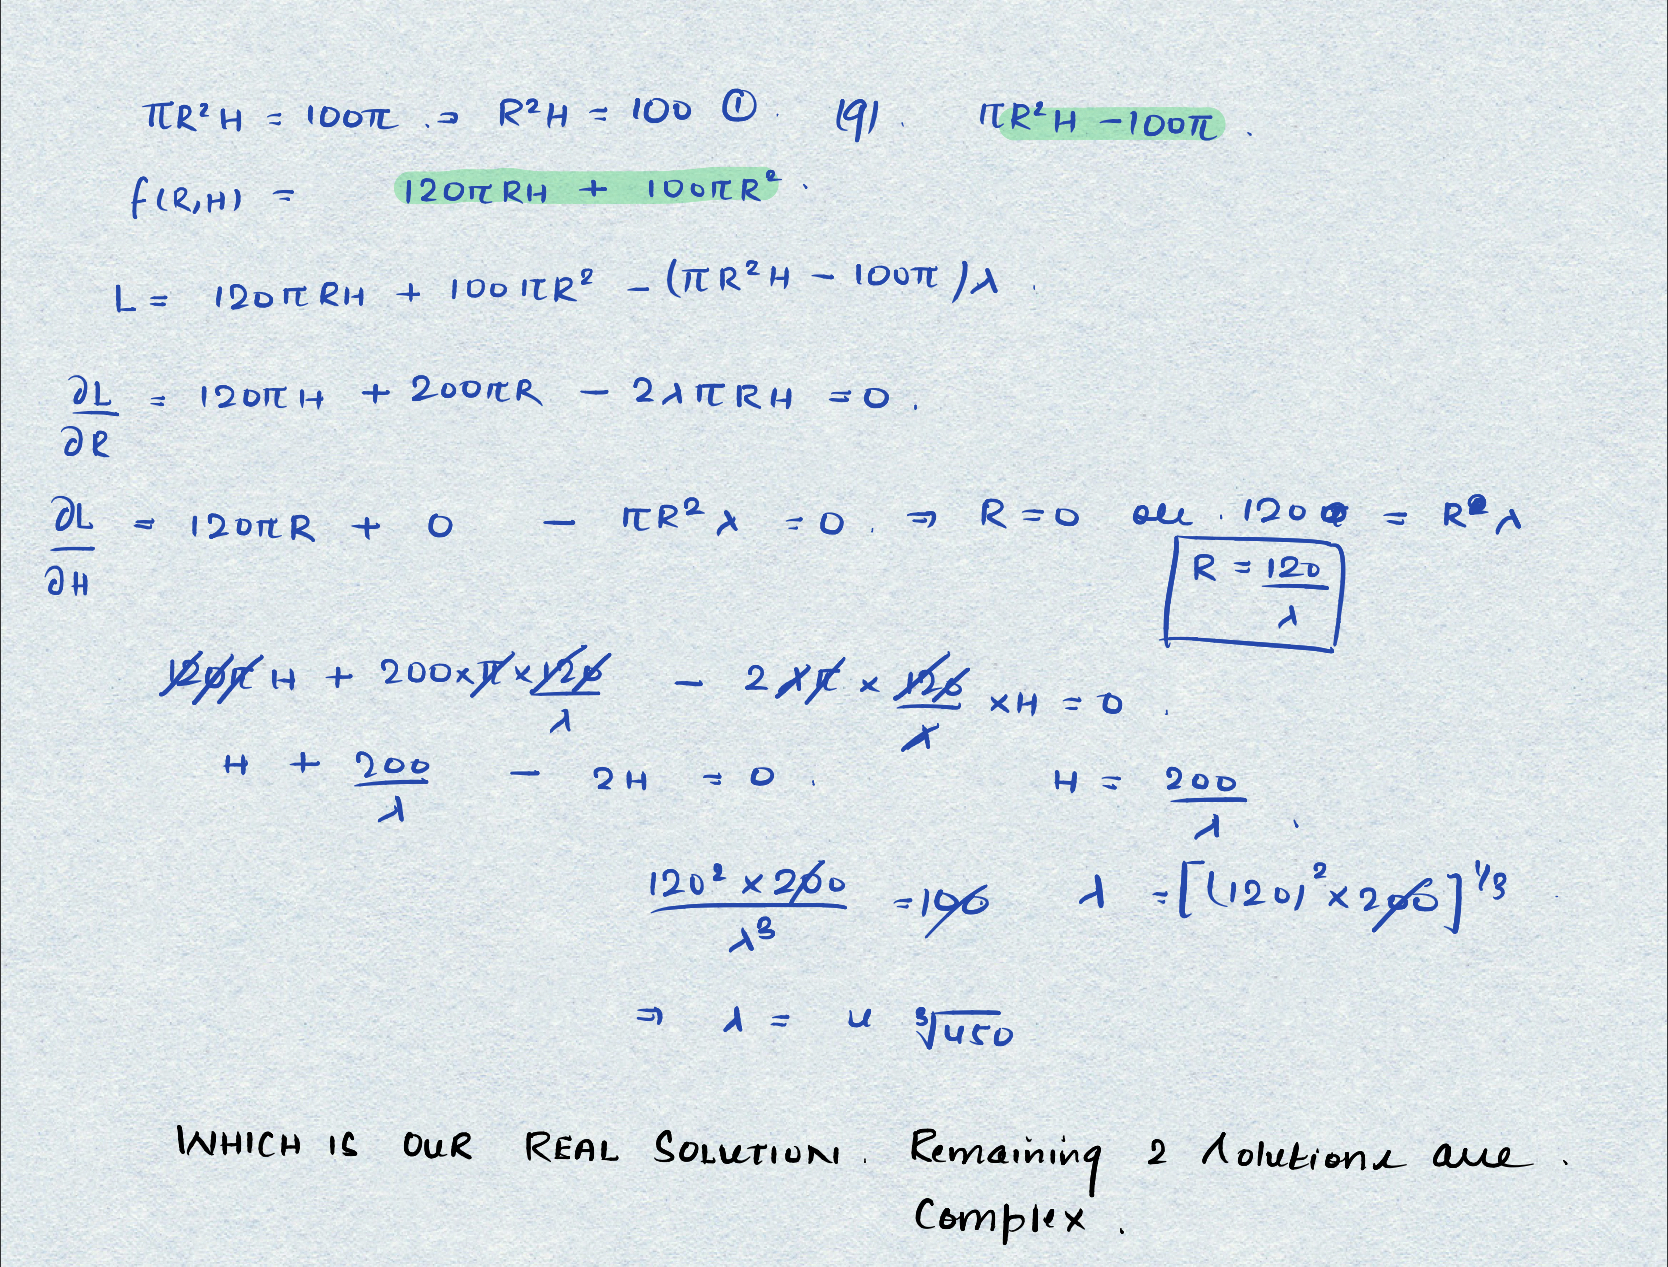 πR²H = 100π . ⇒ R²H = 100 ① . (g) . πR²H − 100π .
f(R,H) = 120πRH + 100πR² .
L = 120πRH + 100πR² − (πR²H − 100π)λ .
∂L/∂R = 120πH + 200πR − 2λπRH = 0 .
∂L/∂H = 120πR + 0 − πR²λ = 0 . ⇒ R = 0 or . 120 = Rλ
R = 120/λ
120πH + 200×π×120/λ − 2λπ × 120/λ ×H = 0 .
H + 200/λ − 2H = 0 . H = 200/λ .
120² × 200/λ³ = 100 λ = [(120)² × 200]^1/3 .
⇒ λ = 4 ∛450
WHICH IS OUR REAL SOLUTION . Remaining 2 solutions are .
Complex .